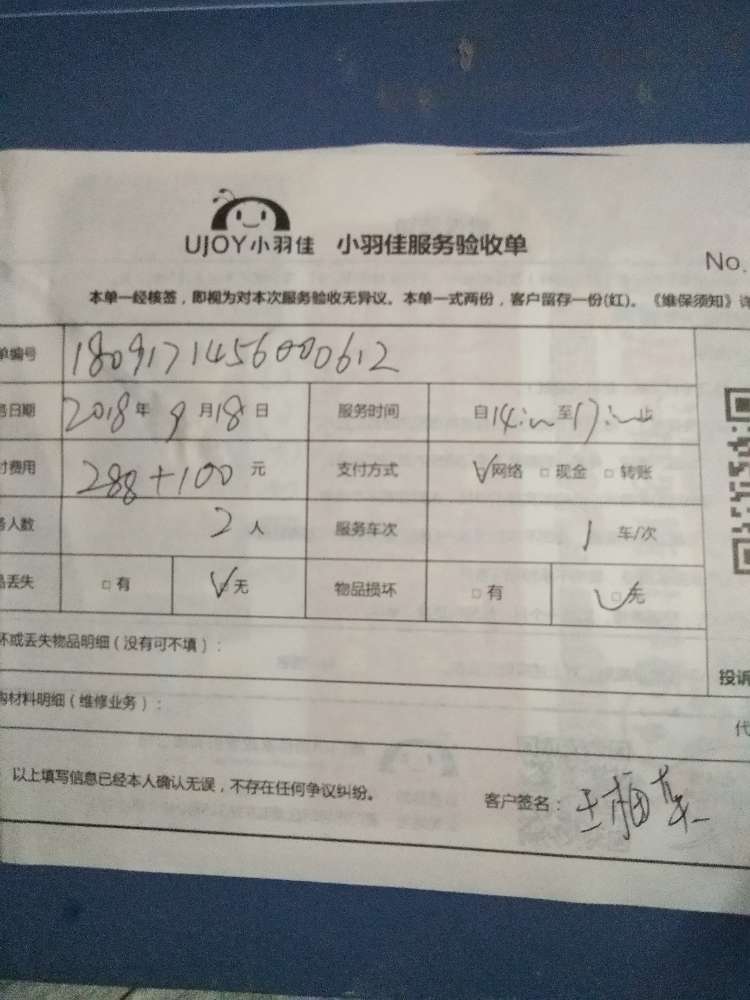 UJOY小羽佳 小羽佳服务验收单
No.
本单一经核签，即视为对本次服务验收无异议。本单一式两份，客户留存一份(红)。《维保须知》详
单编号 1809171456000612
日期 2018年9月18日 服务时间 自14: 至17: 止
费用 288+100元 支付方式 √网络 □现金 □转账
人数 2人 服务车次 1车/次
丢失 □有 √无 物品损坏 □有 √无
坏或丢失物品明细（没有可不填）：
购材料明细（维修业务）：
投诉
代
以上填写信息已经本人确认无误，不存在任何争议纠纷。 客户签名：王